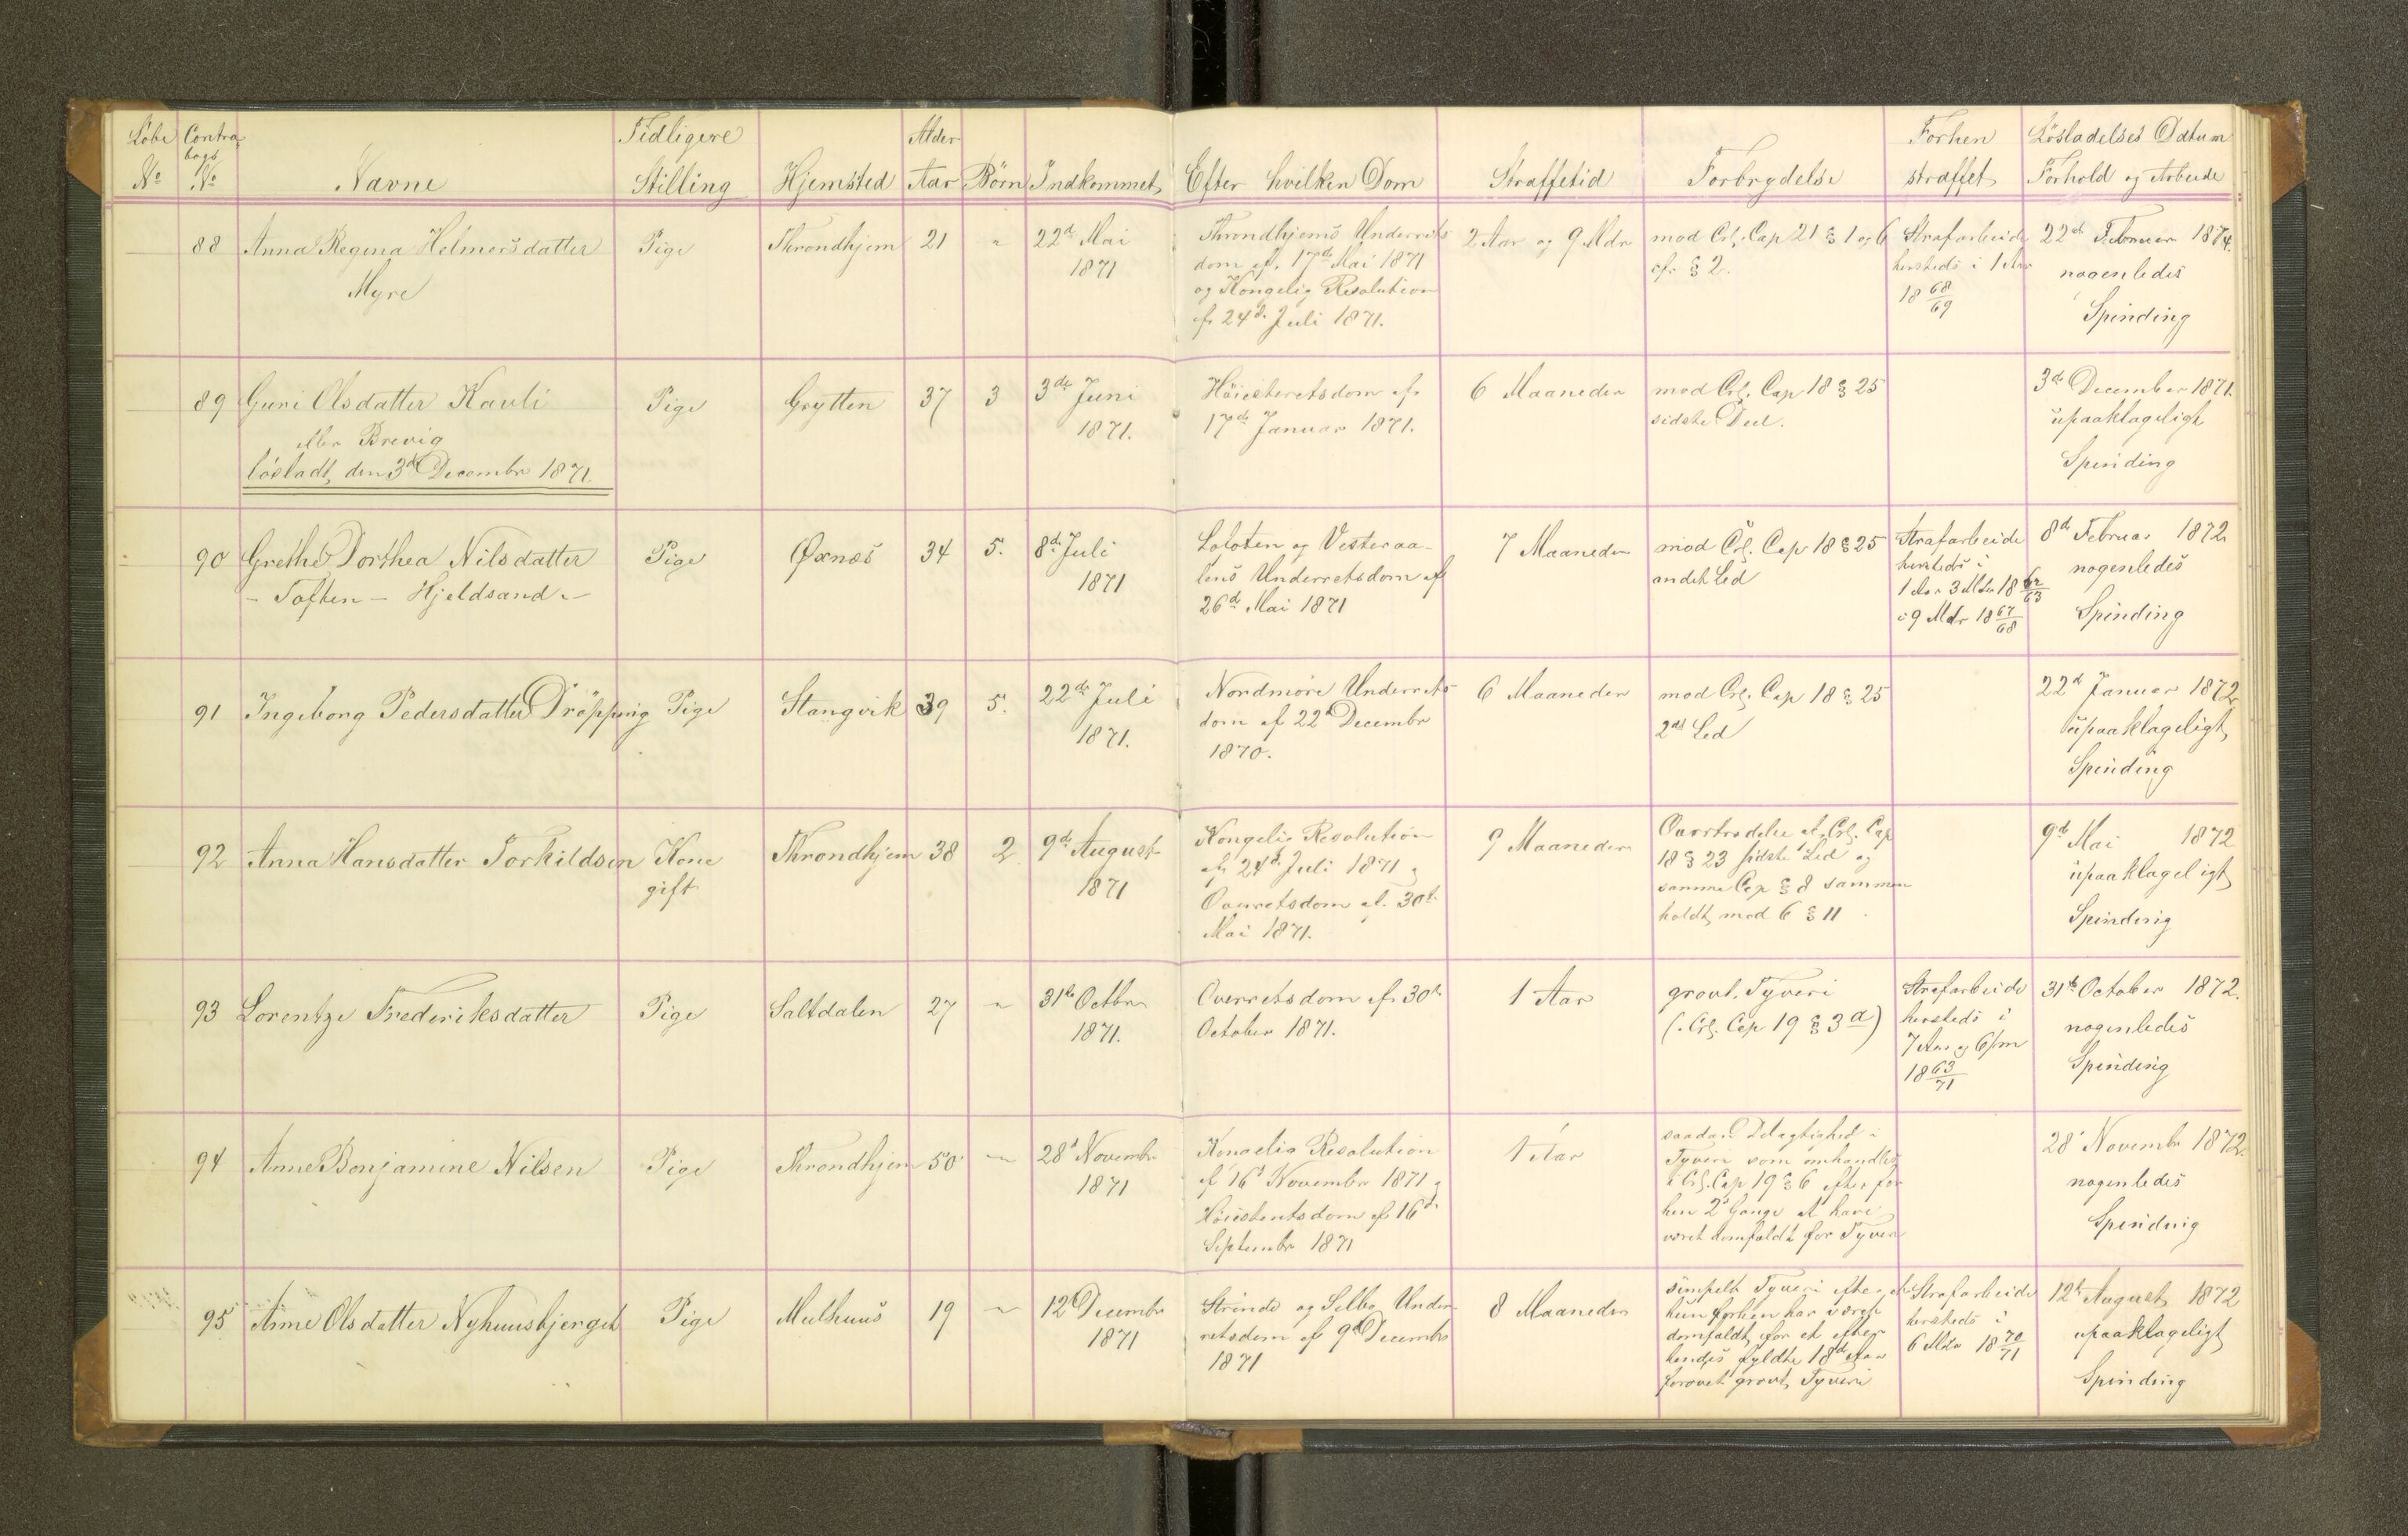 Löbe Contra- Tidligere Alder Forhen Lösladelses Datum
bogs
No No Navne Stilling Hjemsted Aar Börn Indkommet Efter hvilken Dom Straffetid Forbrydelse straffet Forhold og Arbeide
88 Anna Regina Helmersdatter Pige Throndhjem 21 " 22d Mai Throndhjems Underrets 2 Aar og 9 Mdr mod Crl. Cap 21 § 1 og 6 Strafarbeide 22d Februar 1874.
Myre 1871 dom af 17de Mai 1871 cfr § 2. hersteds i 1 Aar nogenledes
og Kongelig Resolution 18 68/69 Spinding
af 24d Juli 1871.
89 Guri Olsdatter Kavli Pige Grytten 37 3 3de Juni Höiesteretsdom af 6 Maaneder mod Crl. Cap 18 § 25 3d December 1871.
eller Brevig 1871. 17de Januar 1871. sidste Deel. upaaklageligt
lösladt den 3d Decembr 1871. Spinding
90 Grethe Dorthea Nilsdatter Pige Øxnæs 34 5. 8de Juli Lofoten og Vesteraa- 7 Maaneder mod Crl. Cap 18 § 25 Strafarbeide 8d Februar 1872
- Toften - Hjeldsand - 1871 lens Underretsdom af andet Led hersteds i nogenledes
26d Mai 1871 1 Aar 3 Mdr 18 62/63 Spinding
i 9 Mdr 18 67/68
91 Ingeborg Pedersdatter Dröpping Pige Stangvik 39 5. 22de Juli Nordmöre Underrets- 6 Maaneder mod Crl. Cap 18 § 25 22d Januar 1872
1871. dom af 22d Decembr 2det Led upaaklageligt
1870. Spinding
92 Anna Hansdatter Torkildsen Kone Throndhjem 38 2 9d August Kongelig Resolution 9 Maaneder Overtrædelse af Crl. Cap 9d Mai 1872
gift 1871 af 24d Juli 1871 og 18 § 23 sidste Led og upaaklageligt
Overretsdom af 30t samme Cap § 8 sammen Spinding
Mai 1871. holdt med 6 § 11.
93 Lorentze Frederiksdatter Pige Saltdalen 27 " 31te Octbr Overretsdom af 30t 1 Aar grovt Tyveri Strafarbeide 31te October 1872.
1871. October 1871. (Crl. Cap 19 § 3 d) hersteds i nogenledes
7 Aar og 6/m Spinding
18 63/71
94 Anne Benjamine Nilsen Pige Throndhjem 50 " 28d Novembr Kongelig Resolution 1 Aar saadan Delagtighed i 28d Novembr 1872.
1871 af 16d Novembr 1871 og Tyveri som omhandles nogenledes
Höiesteretsdom af 16d i Crl. Cap 19 § 6 efter for Spinding
Septembr 1871 hen 2d Gange at have
været domfældt for Tyveri
95 Anne Olsdatter Nyhuusbjerget Pige Melhuus 19 " 12t Decembr Strinde og Selbo Under- 8 Maaneder simpelt Tyveri efter at Strafarbeide 12t August 1872
1871 retsdom af 9d Decembr hun forhen har været hersteds i upaaklageligt
1871 domfældt for et efter 6 Mdr 18 70/71 Spinding
hendes fyldte 18d Aar
forövet grovt Tyveri